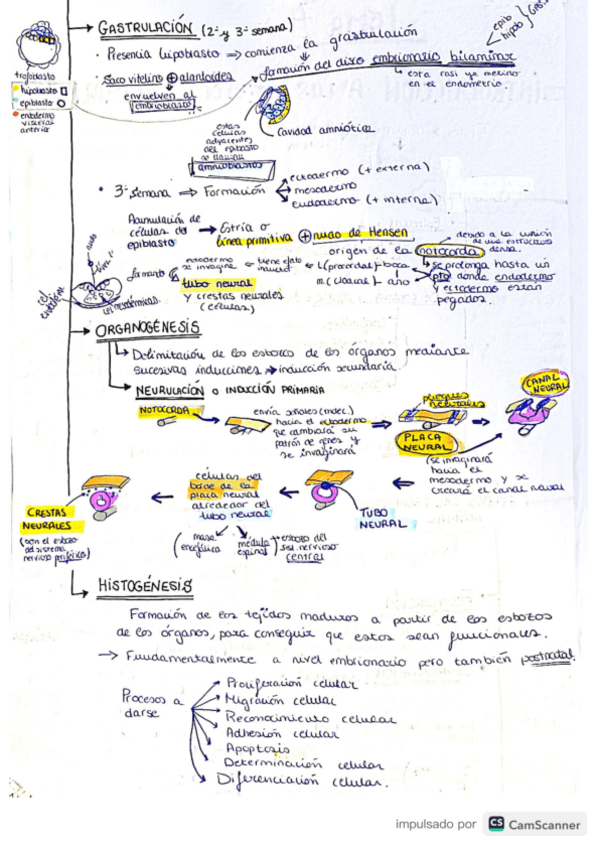 GASTRULACIÓN (2ª y 3ª semana)
epib
hipob
· Presencia hipoblasto → comienza la grastrulación
formación del disco embrionario bilaminar
esta casi ya metido
en el endometrio.
· Saco vitelino ⊕ alantoides
envuelven al
embrioblasto
trofoblasto
hipoblasto
epiblasto
endodermo
visceral
anterior
estas
células
adyacentes
del epiblasto
se llaman
amnioblastos
Cavidad amniótica
· 3ª semana ⇒ Formación
ectodermo (+ externa)
mesodermo
endodermo (+ interna)
Acumulación de
células do
epiblasto
→ Estría o
línea primitiva ⊕ nudo de Hensen
origen de la notocorda
debido a la
de una estructura
densa.
se prolonga hasta un
pto donde endodermo
y ectodermo están
pegados.
formando
se invagina
tiene efato
tubo neural
y crestas neurales
(células)
boca
m. (cloacal) - ano
ORGANOGÉNESIS
Delimitación de los esbozos de los órganos mediante
sucesivas inducciones → inducción secundaria.
NEURULACIÓN o INDUCCIÓN PRIMARIA
NOTOCORDA
envía señales (molec.)
hacia el ectodermo
que cambiará su
patrón de genes y
se invaginará
pliegues
neurales
CANAL
NEURAL
PLACA
NEURAL
(se invaginará
hacia el
mesodermo y se
creará el canal
TUBO
NEURAL
células del
borde de la
placa neural
alrededor del
tubo neural
(masa
encefálica
médula
espinal)
esbozo del
sist. nervioso
central
CRESTAS
NEURALES
(son el esbozo
del sistema
nervioso periférico)
HISTOGÉNESIS
Formación de los tejidos maduros a partir de los esbozos
de los órganos, para conseguir que estos sean funcionales.
→ Fundamentalmente a nivel embrionario pero también postnatal.
Procesos a
darse
Proliferación celular
Migración celular
Reconocimiento celular
Adhesión celular
Apoptosis
Determinación celular
Diferenciación celular.
impulsado por CS CamScanner